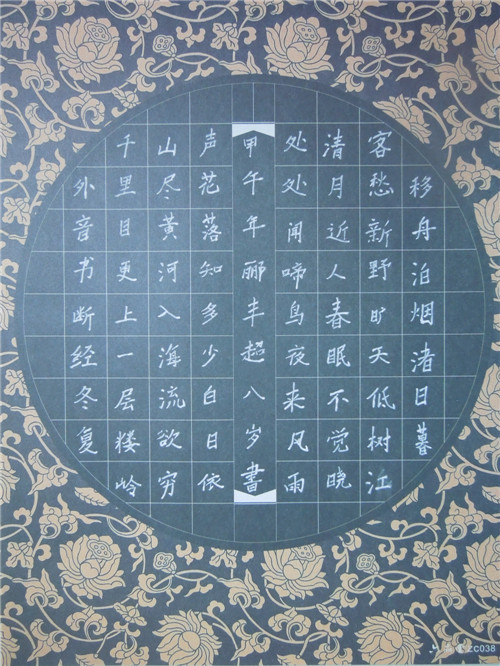 移舟泊烟渚日暮
客愁新野旷天低树江
清月近人春眠不觉晓
处处闻啼鸟夜来风雨
甲午年郦丰超八岁書
声花落知多少白日依
山尽黄河入海流欲穷
千里目更上一层楼岭
外音书断经冬复
ZC038